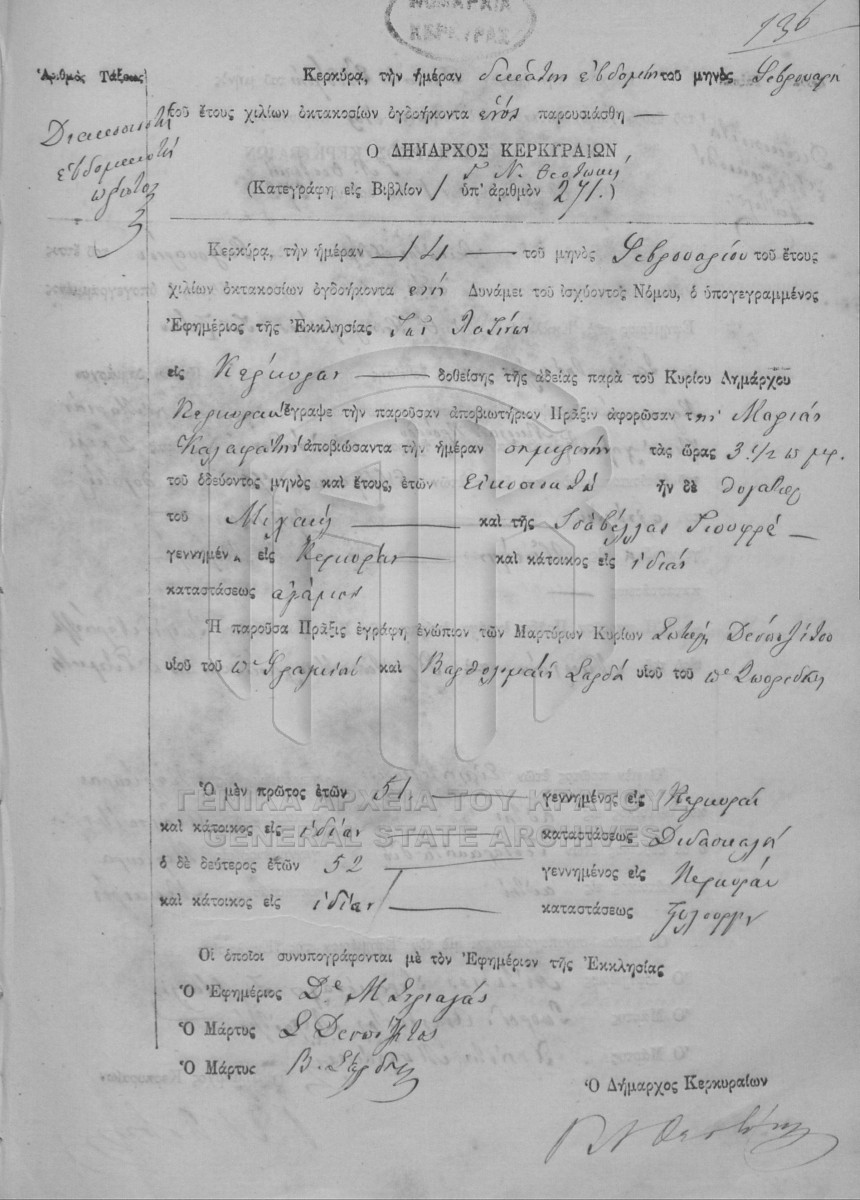 ΝΟΜΑΡΧΙΑ
ΚΕΡΚΥΡΑΣ
136
Ἀριθμὸς Τάξεως
Διακοσιοστὴ
ἑβδομηκοστὴ
πρώτη
Κερκύρα, τὴν ἡμέραν δεκάτην ἑβδόμην τοῦ μηνὸς Φεβρουαρί
τοῦ ἔτους χιλίων ὀκτακοσίων ὀγδοήκοντα ἑνός παρουσιάσθη —
Ο ΔΗΜΑΡΧΟΣ ΚΕΡΚΥΡΑΙΩΝ,
Γ. Ν. Θεοτώκης
(Κατεγράφη εἰς Βιβλίον 1 ὑπ' ἀριθμὸν 271.)
Κερκύρα, τὴν ἡμέραν 14 — τοῦ μηνὸς Φεβρουαρίου τοῦ ἔτους
χιλίων ὀκτακοσίων ὀγδοήκοντα ἑνὸς Δυνάμει τοῦ ἰσχύοντος Νόμου, ὁ ὑπογεγραμμένος
Ἐφημέριος τῆς Ἐκκλησίας τῶν Λατίνων
εἰς Κέρκυραν — δοθείσης τῆς ἀδείας παρὰ τοῦ Κυρίου Δημάρχου
Κερκυραίων ἔγραψε τὴν παροῦσαν ἀποβιωτήριον Πρᾶξιν ἀφορῶσαν τὴν Μαρίαν
Καλαφάτη ἀποβιώσαντα τὴν ἡμέραν σημερινὴν τὰς ὥρας 3 1/2 π μρ.
τοῦ ὁδεύοντος μηνὸς καὶ ἔτους, ἐτῶν Εἰκοσιεπτὰ ἦν δὲ θυγάτηρ
τοῦ Μιχαὴλ — καὶ τῆς Ἰσαβέλλας —
γεννημέν εἰς Κέρκυραν — καὶ κάτοικος εἰς ἰδίαν
καταστάσεως ἀγάμου
Ἡ παροῦσα Πρᾶξις ἐγράφη ἐνώπιον τῶν Μαρτύρων Κυρίων Σωτήρ Δεσπότζιτο
υἱοῦ τοῦ π. καὶ Βαρθολομαίου Σαρδῆ υἱοῦ τοῦ πε Σπυρίδωνος
Ὁ μὲν πρῶτος ἐτῶν 51 — γεννημένος εἰς Κέρκυραν
ΓΕΝΙΚΑ ΑΡΧΕΙΑ ΤΟΥ ΚΡΑΤΟΥΣ
καὶ κάτοικος εἰς ἰδίαν — καταστάσεως Διδάσκαλος
GENERAL STATE ARCHIVES
ὁ δὲ δεύτερος ἐτῶν 52 — γεννημένος εἰς Κέρκυραν
καὶ κάτοικος εἰς ἰδίαν — καταστάσεως ξυλουργὸν
Οἱ ὁποῖοι συνυπογράφονται μὲ τὸν Ἐφημέριον τῆς Ἐκκλησίας
Ὁ Ἐφημέριος Δ. Μ. Σιριανάς
Ὁ Μάρτυς Σ. Δεσπότζιτος
Ὁ Μάρτυς Β. Σάρδης
Ὁ Δήμαρχος Κερκυραίων
Γ Ν Θεοτόκης